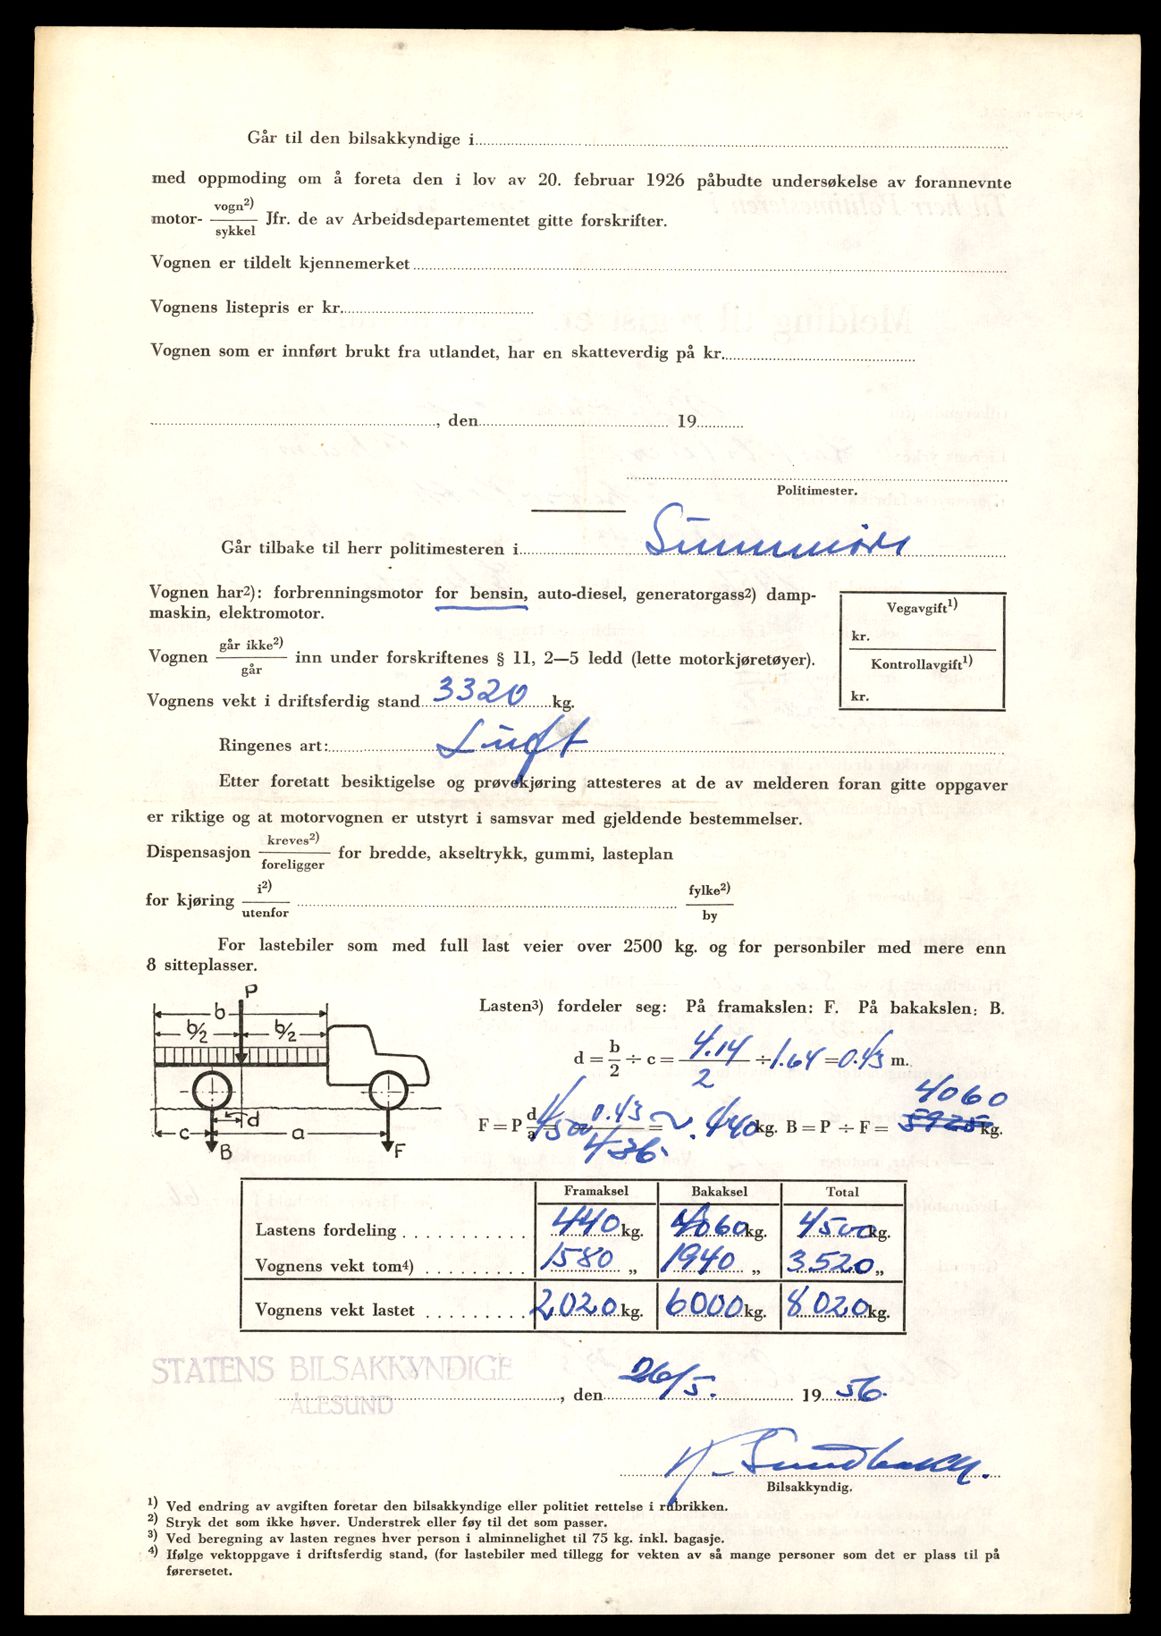 Går til den bilsakkyndige i
med oppmoding om å foreta den i lov av 20. februar 1926 påbudte undersøkelse av forannevnte
motor- vogn2)/sykkel Jfr. de av Arbeidsdepartementet gitte forskrifter.
Vognen er tildelt kjennemerket
Vognens listepris er kr.
Vognen som er innført brukt fra utlandet, har en skatteverdig på kr.
, den 19
Politimester.
Går tilbake til herr politimesteren i Sunnmøre
Vognen har2): forbrenningsmotor for bensin, auto-diesel, generatorgass2) damp-
maskin, elektromotor.
Vegavgift1)
kr.
Kontrollavgift1)
kr.
Vognen går ikke2)/går inn under forskriftenes § 11, 2—5 ledd (lette motorkjøretøyer).
Vognens vekt i driftsferdig stand 3320 kg.
Ringenes art: Luft
Etter foretatt besiktigelse og prøvekjøring attesteres at de av melderen foran gitte oppgaver
er riktige og at motorvognen er utstyrt i samsvar med gjeldende bestemmelser.
Dispensasjon kreves2)/foreligger for bredde, akseltrykk, gummi, lasteplan
for kjøring i2)/utenfor fylke2)/by
For lastebiler som med full last veier over 2500 kg. og for personbiler med mere enn
8 sitteplasser.
P
b
b/2 b/2
d
c a
B F
Lasten3) fordeler seg: På framakslen: F. På bakakslen: B.
d = b/2 ÷ c = 4.14/2 ÷ 1.64 = 0.43 m.
4060
F = P d/a = 4500 0.43/4.36 = ~ 440 kg. B = P ÷ F = 3925 kg.
Framaksel Bakaksel Total
Lastens fordeling 440 kg. 4060 kg. 4500 kg.
Vognens vekt tom4) 1580 „ 1940 „ 3520 „
Vognens vekt lastet 2020 kg. 6000 kg. 8020 kg.
STATENS BILSAKKYNDIGE
ÅLESUND
, den 26/5. 1956.
K. Sundbakk.
Bilsakkyndig.
1) Ved endring av avgiften foretar den bilsakkyndige eller politiet rettelse i rubrikken.
2) Stryk det som ikke høver. Understrek eller føy til det som passer.
3) Ved beregning av lasten regnes hver person i alminnelighet til 75 kg. inkl. bagasje.
4) Ifølge vektoppgave i driftsferdig stand, (for lastebiler med tillegg for vekten av så mange personer som det er plass til på
førersetet.